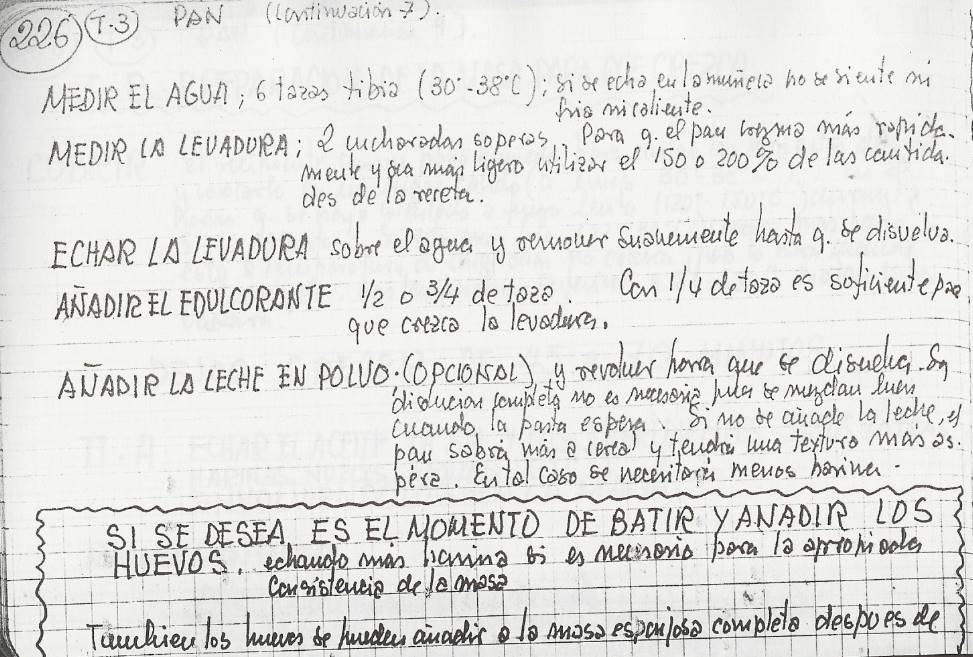 226 T.3 PAN (Continuación 7).
MEDIR EL AGUA; 6 tazas tibia (30°-38°C); si se echa en la muñeca no se siente ni
fria ni caliente.
MEDIR LA LEVADURA; 2 cucharadas soperas. Para q. el pan crezca más rapida-
mente y sea mas ligero utilizar el 150 o 200% de las cantida-
des de la receta.
ECHAR LA LEVADURA sobre el agua y remover suavemente hasta q. se disuelva.
AÑADIR EL EDULCORANTE 1/2 o 3/4 de taza. Con 1/4 de taza es suficiente para
que crezca la levadura.
AÑADIR LA LECHE EN POLVO.(OPCIONAL) y revolver para que se disuelva. Su
disolucion completa no es necesaria pues se mezclan bien
cuando la pasta espesa. Si no se añade la leche, el
pan sabrá más a cereal y tendrá una textura más ás-
pera. En tal caso se necesitaría menos harina.
SI SE DESEA, ES EL MOMENTO DE BATIR Y AÑADIR LOS
HUEVOS, echando más harina si es necesario para la apropiada
consistencia de la masa
Tambien los huevos se pueden añadir a la masa esponjosa completa despues de